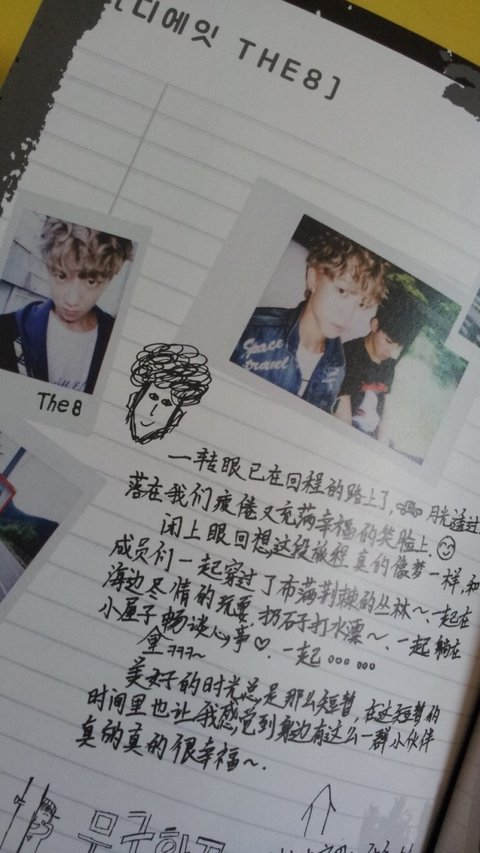 [디에잇 THE8]
Space
travel
The8
一转眼已在回程的路上了, 月光透过
落在我们疲倦又充满幸福的笑脸上.
闭上眼回想,这段旅程真的像梦一样,和
成员们一起穿过了布满荆棘的丛林~、一起在
海边尽情的玩耍、扔石子打水漂~、一起躺在
小屋子畅谈心事♡. 一起……
里ㅋㅋㅋ~
美好的时光总是那么短暂, 在这短暂的
时间里也让我感觉到身边有这么一群小伙伴
真的真的很幸福~.
무궁화